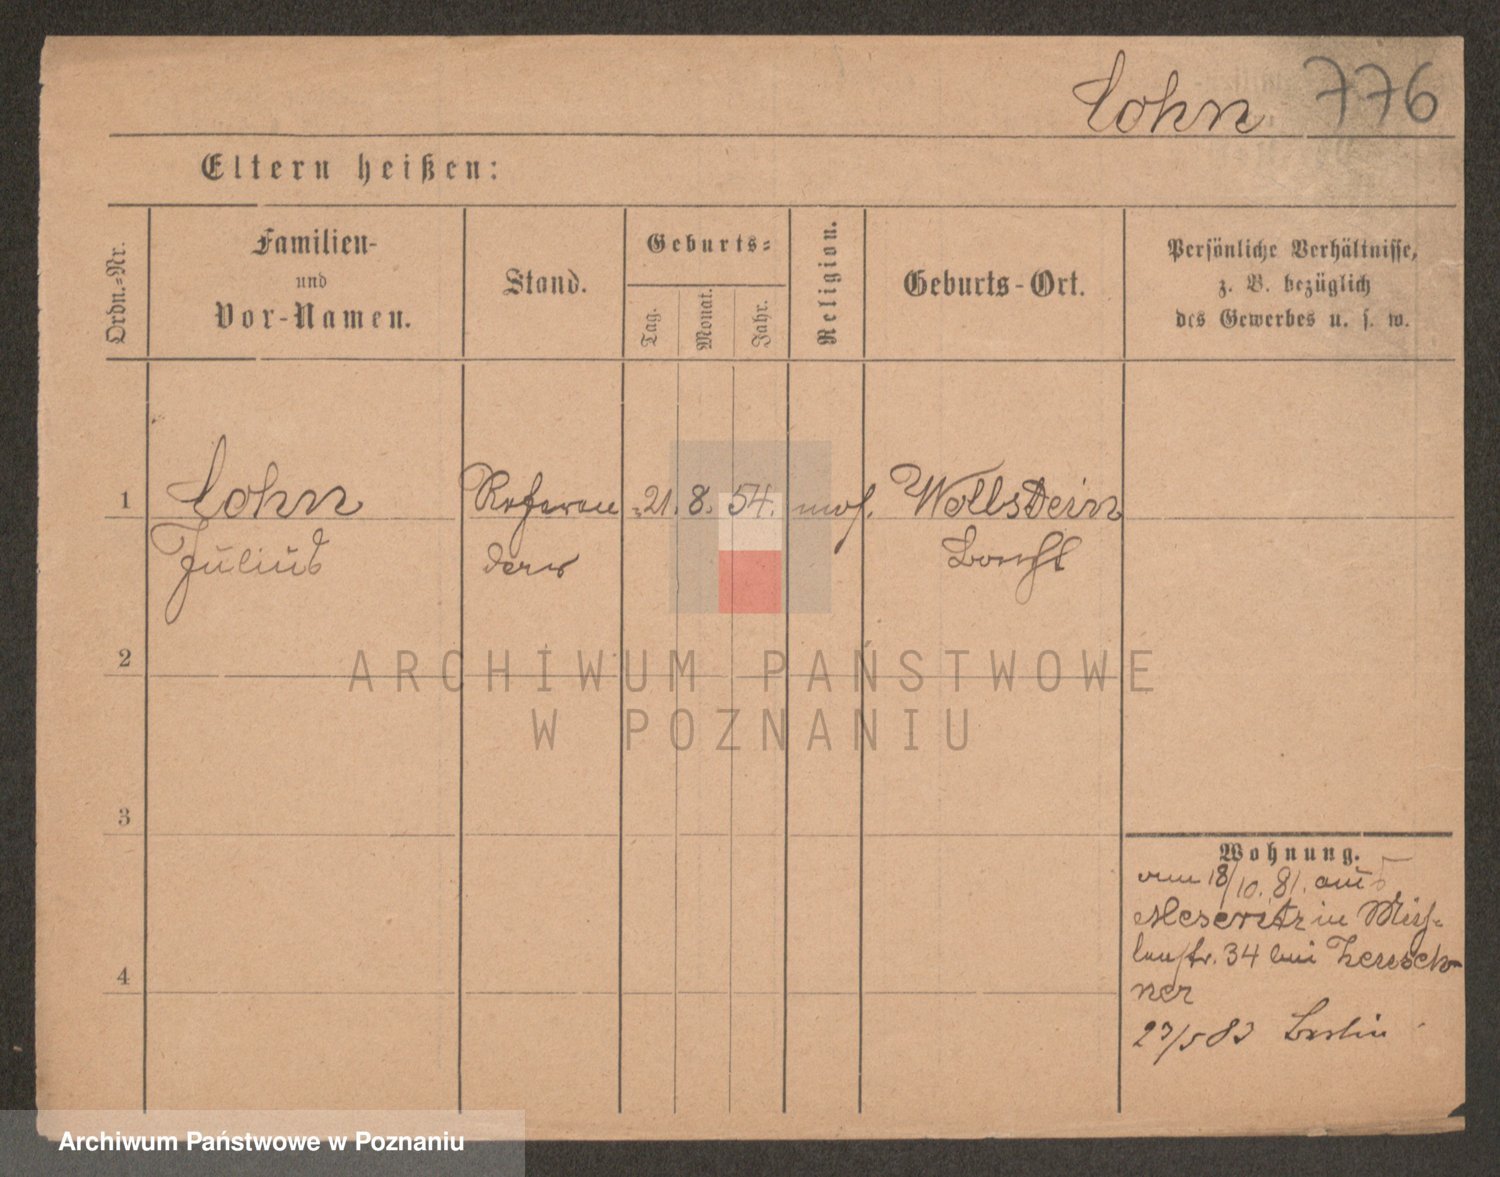 Cohn 776
Eltern heißen:
Ordn.=Nr.
Familien-
und
Vor-Namen.
Stand.
Geburts=
Tag.
Monat.
Jahr.
Religion.
Geburts-Ort.
Persönliche Verhältnisse,
z. B. bezüglich
des Gewerbes u. s. w.
1 Cohn Referen= 21. 8. 54. mos. Wollstein
Julius darr Bomst
2
ARCHIWUM PAŃSTWOWE
W POZNANIU
3
4
Wohnung.
vom 18/10. 81. aus
Meseritz in Müh=
lenstr. 34 bei Zeuschner
ner
23/5 83 Berlin
Archiwum Państwowe w Poznaniu